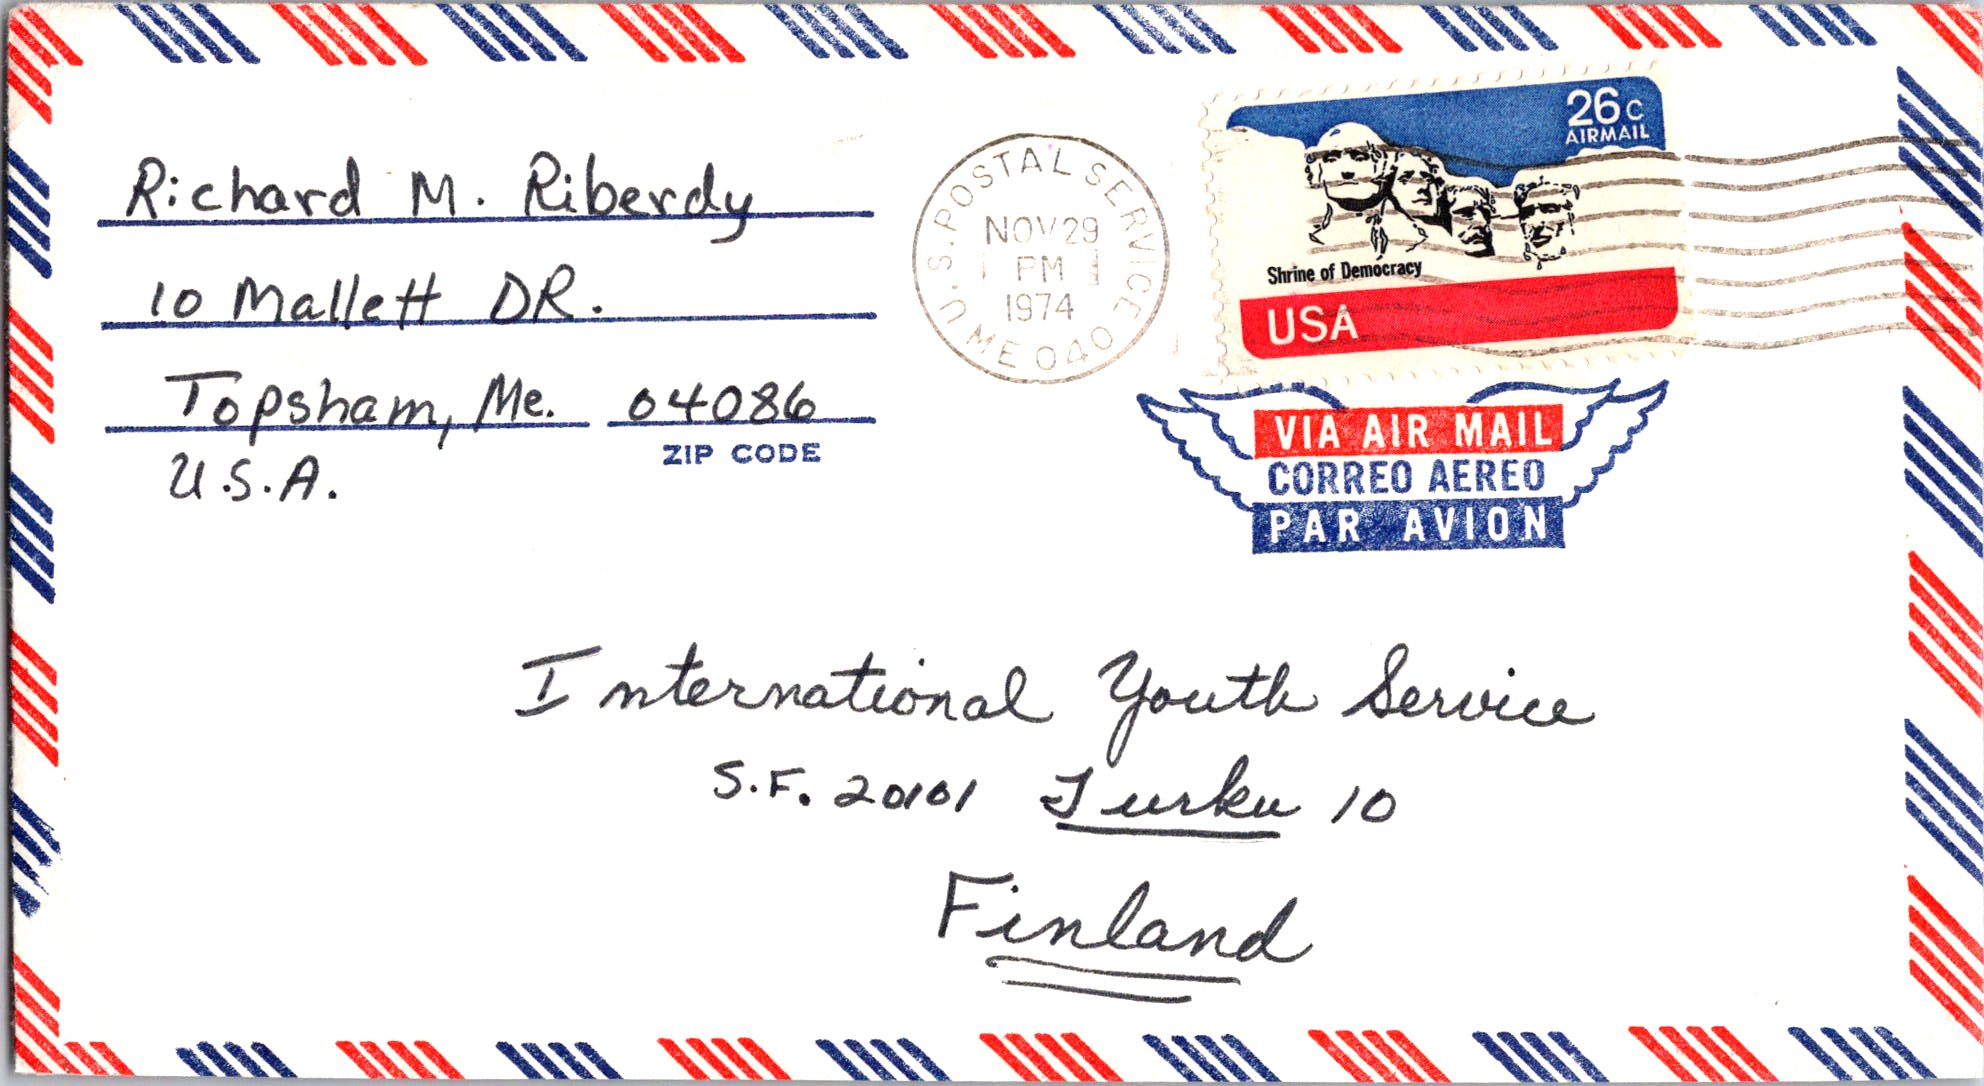 Richard M. Riberdy
10 Mallett DR.
Topsham, Me. 04086
ZIP CODE
U.S.A.
U.S. POSTAL SERVICE
NOV 29
PM
1974
ME 040
26c
AIRMAIL
Shrine of Democracy
USA
VIA AIR MAIL
CORREO AEREO
PAR AVION
International Youth Service
S.F. 20101 Turku 10
Finland